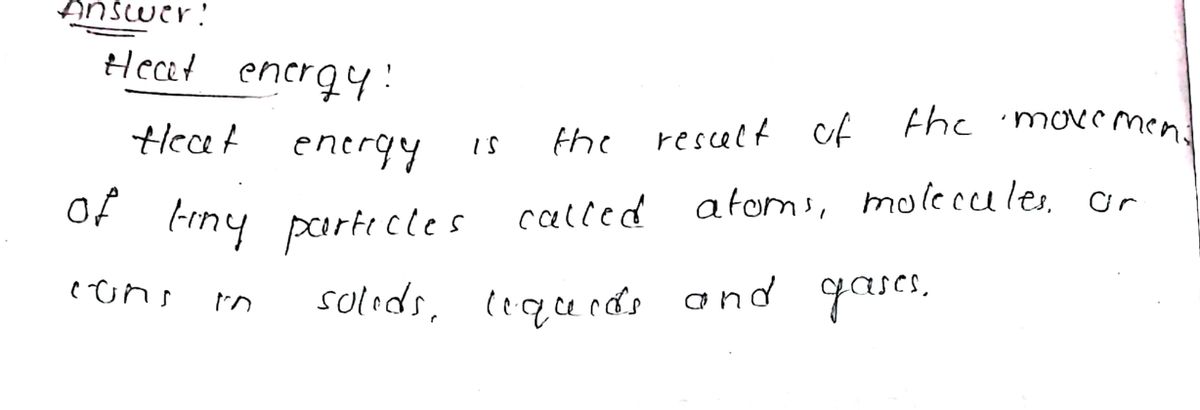 Answer:
Heat energy:
Heat energy is the result of the movemen
of tiny particles called atoms, molecules, or
ions in solids, liquids and gases.